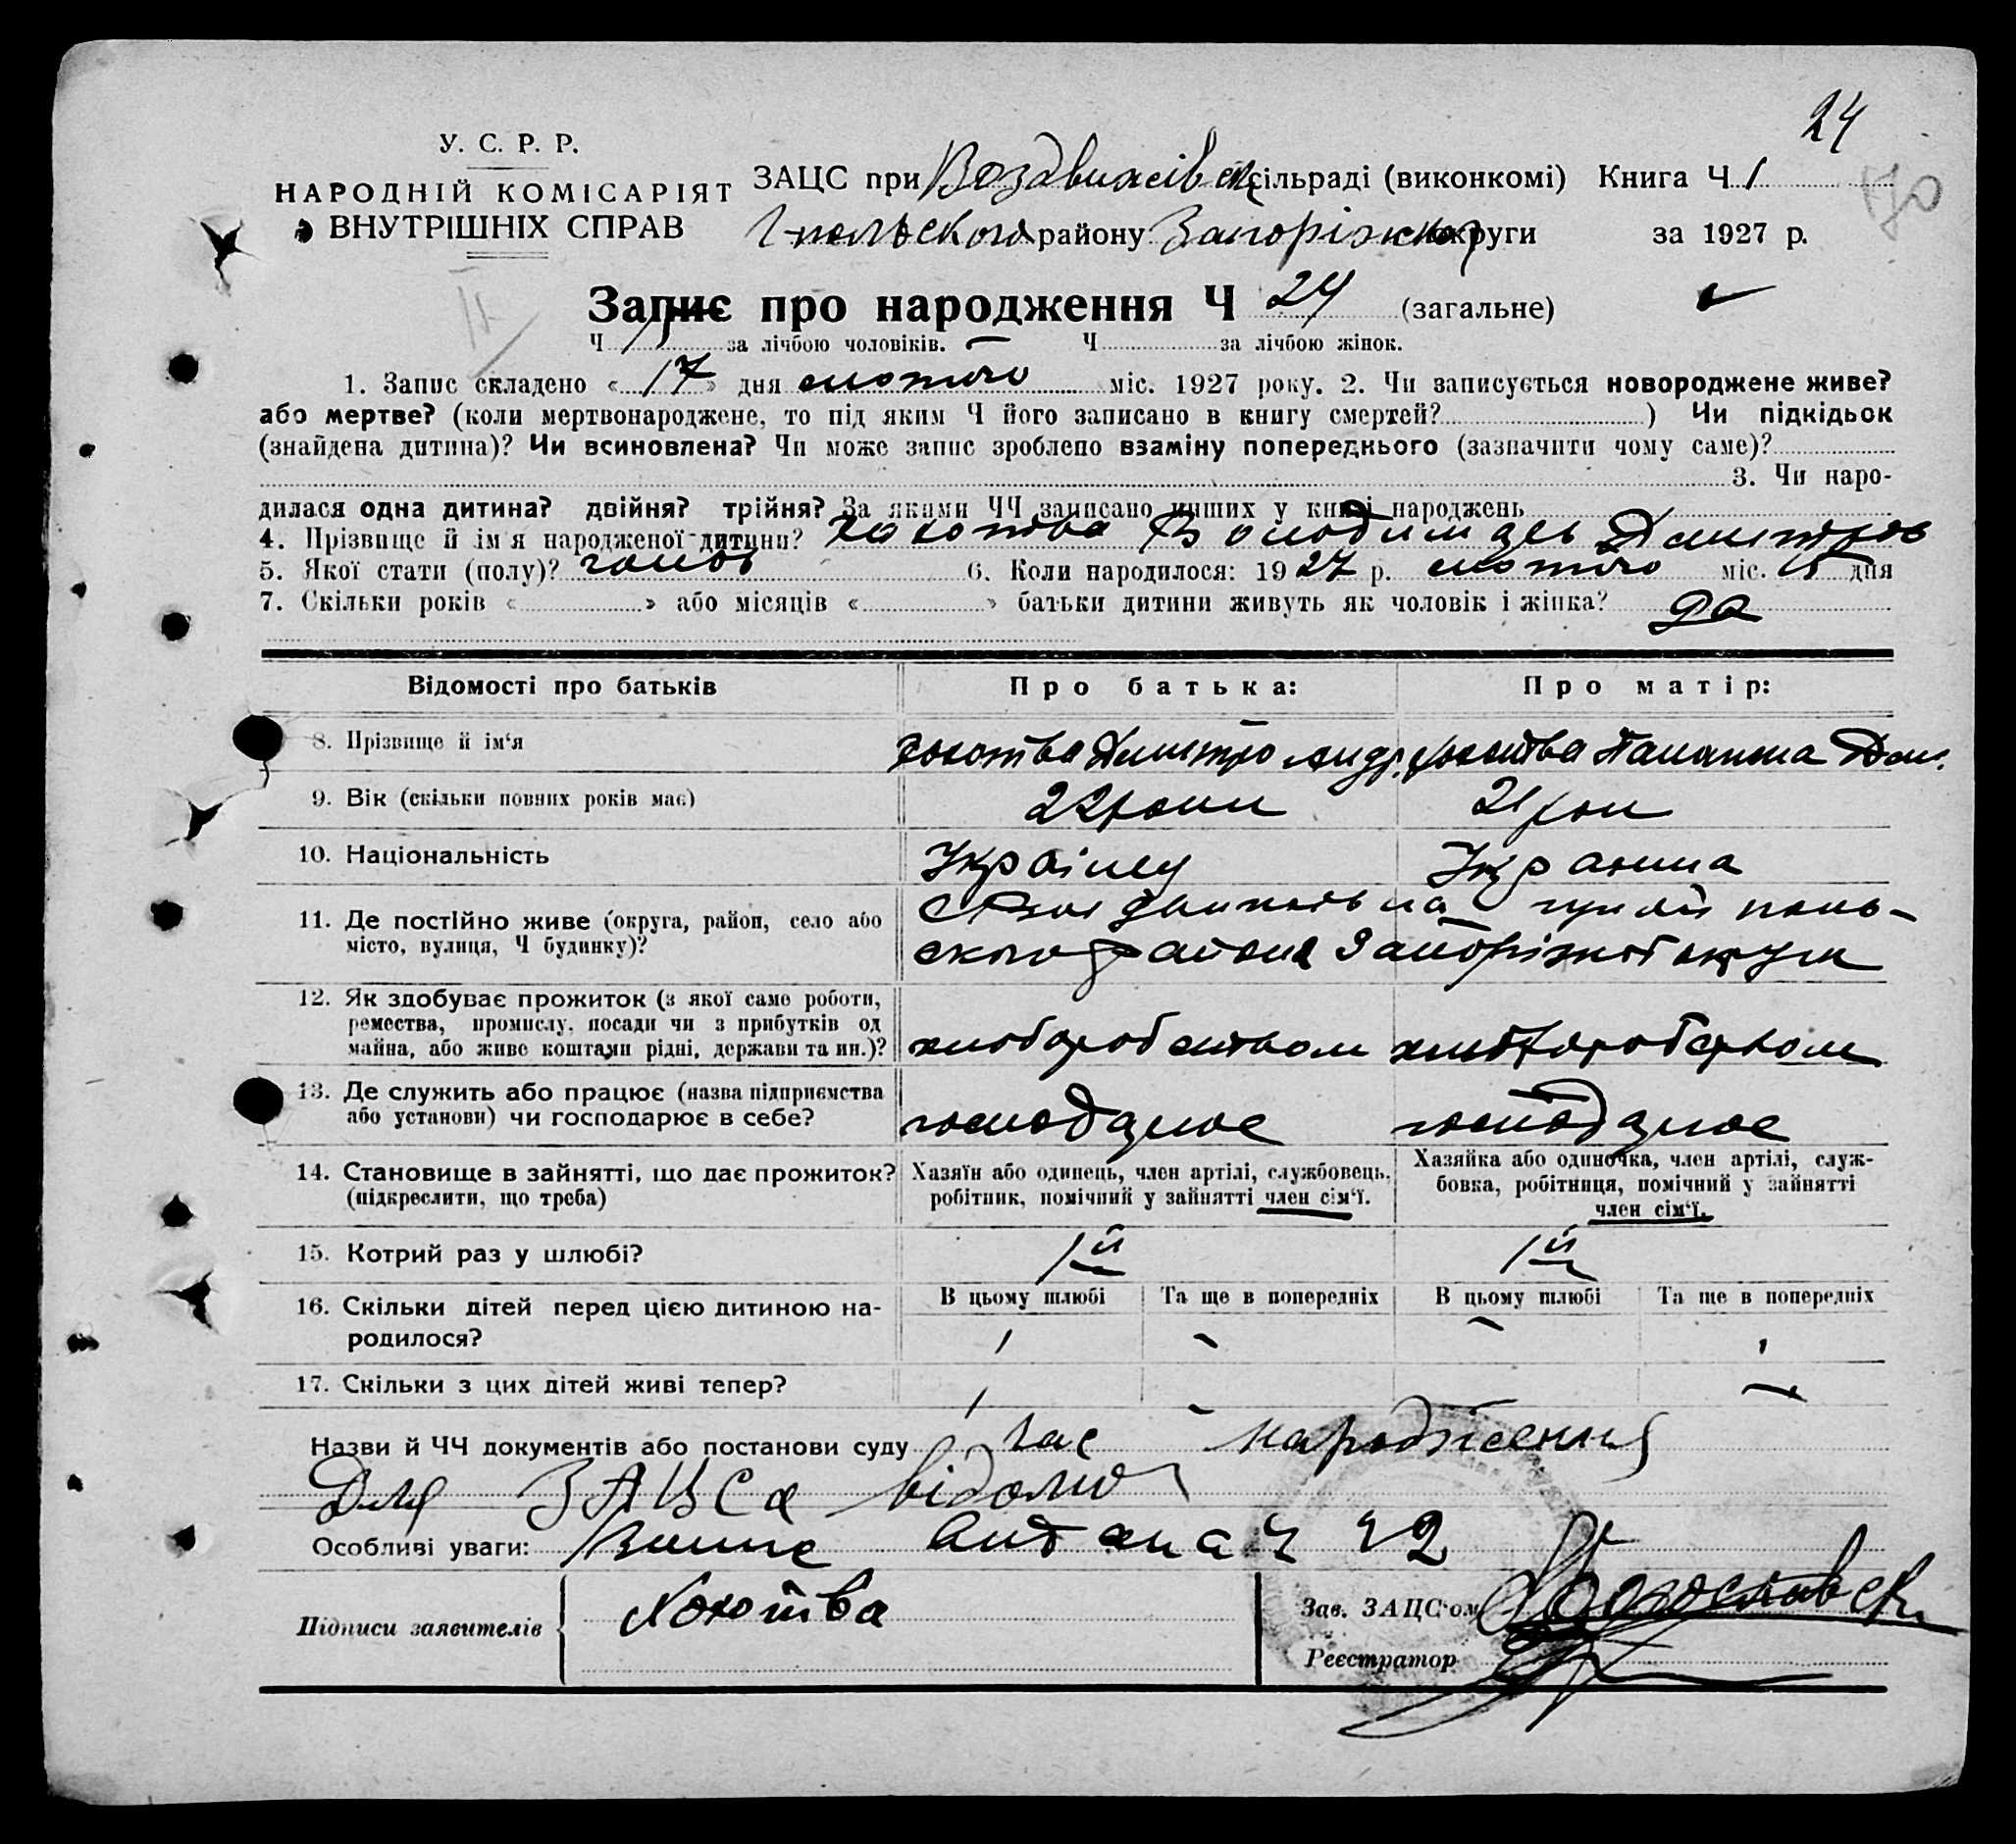 24
У. С. Р. Р.
НАРОДНІЙ КОМІСАРІЯТ
ВНУТРІШНІХ СПРАВ
ЗАЦС при Воздвижівськ сільраді (виконкомі) Книга Ч 1
району Запорізької округи за 1927 р.
Запис про народження Ч 24 (загальне)
Ч за лічбою чоловіків. — Ч за лічбою жінок.
1. Запис складено « 17 » дня лютого міс. 1927 року. 2. Чи записується новороджене живе?
або мертве? (коли мертвонароджене, то під яким Ч його записано в книгу смертей? ) Чи підкідьок
(знайдена дитина)? Чи всиновлена? Чи може запис зроблено взаміну попереднього (зазначити чому саме)?
3. Чи наро-
дилася одна дитина? двійня? трійня? За якими ЧЧ записано инших у книзі народжень
4. Прізвище й ім'я народженої дитини? Володимир Дмитров
5. Якої стати (полу)? чолов 6. Коли народилося: 1927 р. лютого міс. 15 дня
7. Скільки років « » або місяців « » батьки дитини живуть як чоловік і жінка? да
Відомості про батьків Про батька: Про матір:
8. Прізвище й ім'я Дмитро Андр.
9. Вік (скільки повних років має) 22 роки 21 рок
10. Національність Українец Українка
11. Де постійно живе (округа, район, село або
місто, вулиця, Ч будинку)? района Запорізької округи
12. Як здобуває прожиток (з якої само роботи,
ремества, промислу, посади чи з прибутків од
майна, або живе коштами рідні, держави та ин.)? хлоборобством хлоборобством
13. Де служить або працює (назва підприємства
або установи) чи господарює в себе? господарює господарює
14. Становище в зайнятті, що дає прожиток?
(підкреслити, що треба)
Хазяїн або одинець, член артілі, службовець,
робітник, помічний у зайнятті член сім'ї.
Хазяйка або одиночка, член артілі, служ-
бовка, робітниця, помічний у зайнятті
член сім'ї.
15. Котрий раз у шлюбі? 1й 1й
16. Скільки дітей перед цією дитиною на-
родилося?
В цьому шлюбі Та ще в попередніх В цьому шлюбі Та ще в попередніх
1 - - 1
17. Скільки з цих дітей живі тепер? 1 -
Назви й ЧЧ документів або постанови суду час народження
Для ЗАЦСа відомо
Особливі уваги: Ч 22
Підписи заявителів Хохотва
Зав. ЗАЦС'ом
Реєстратор